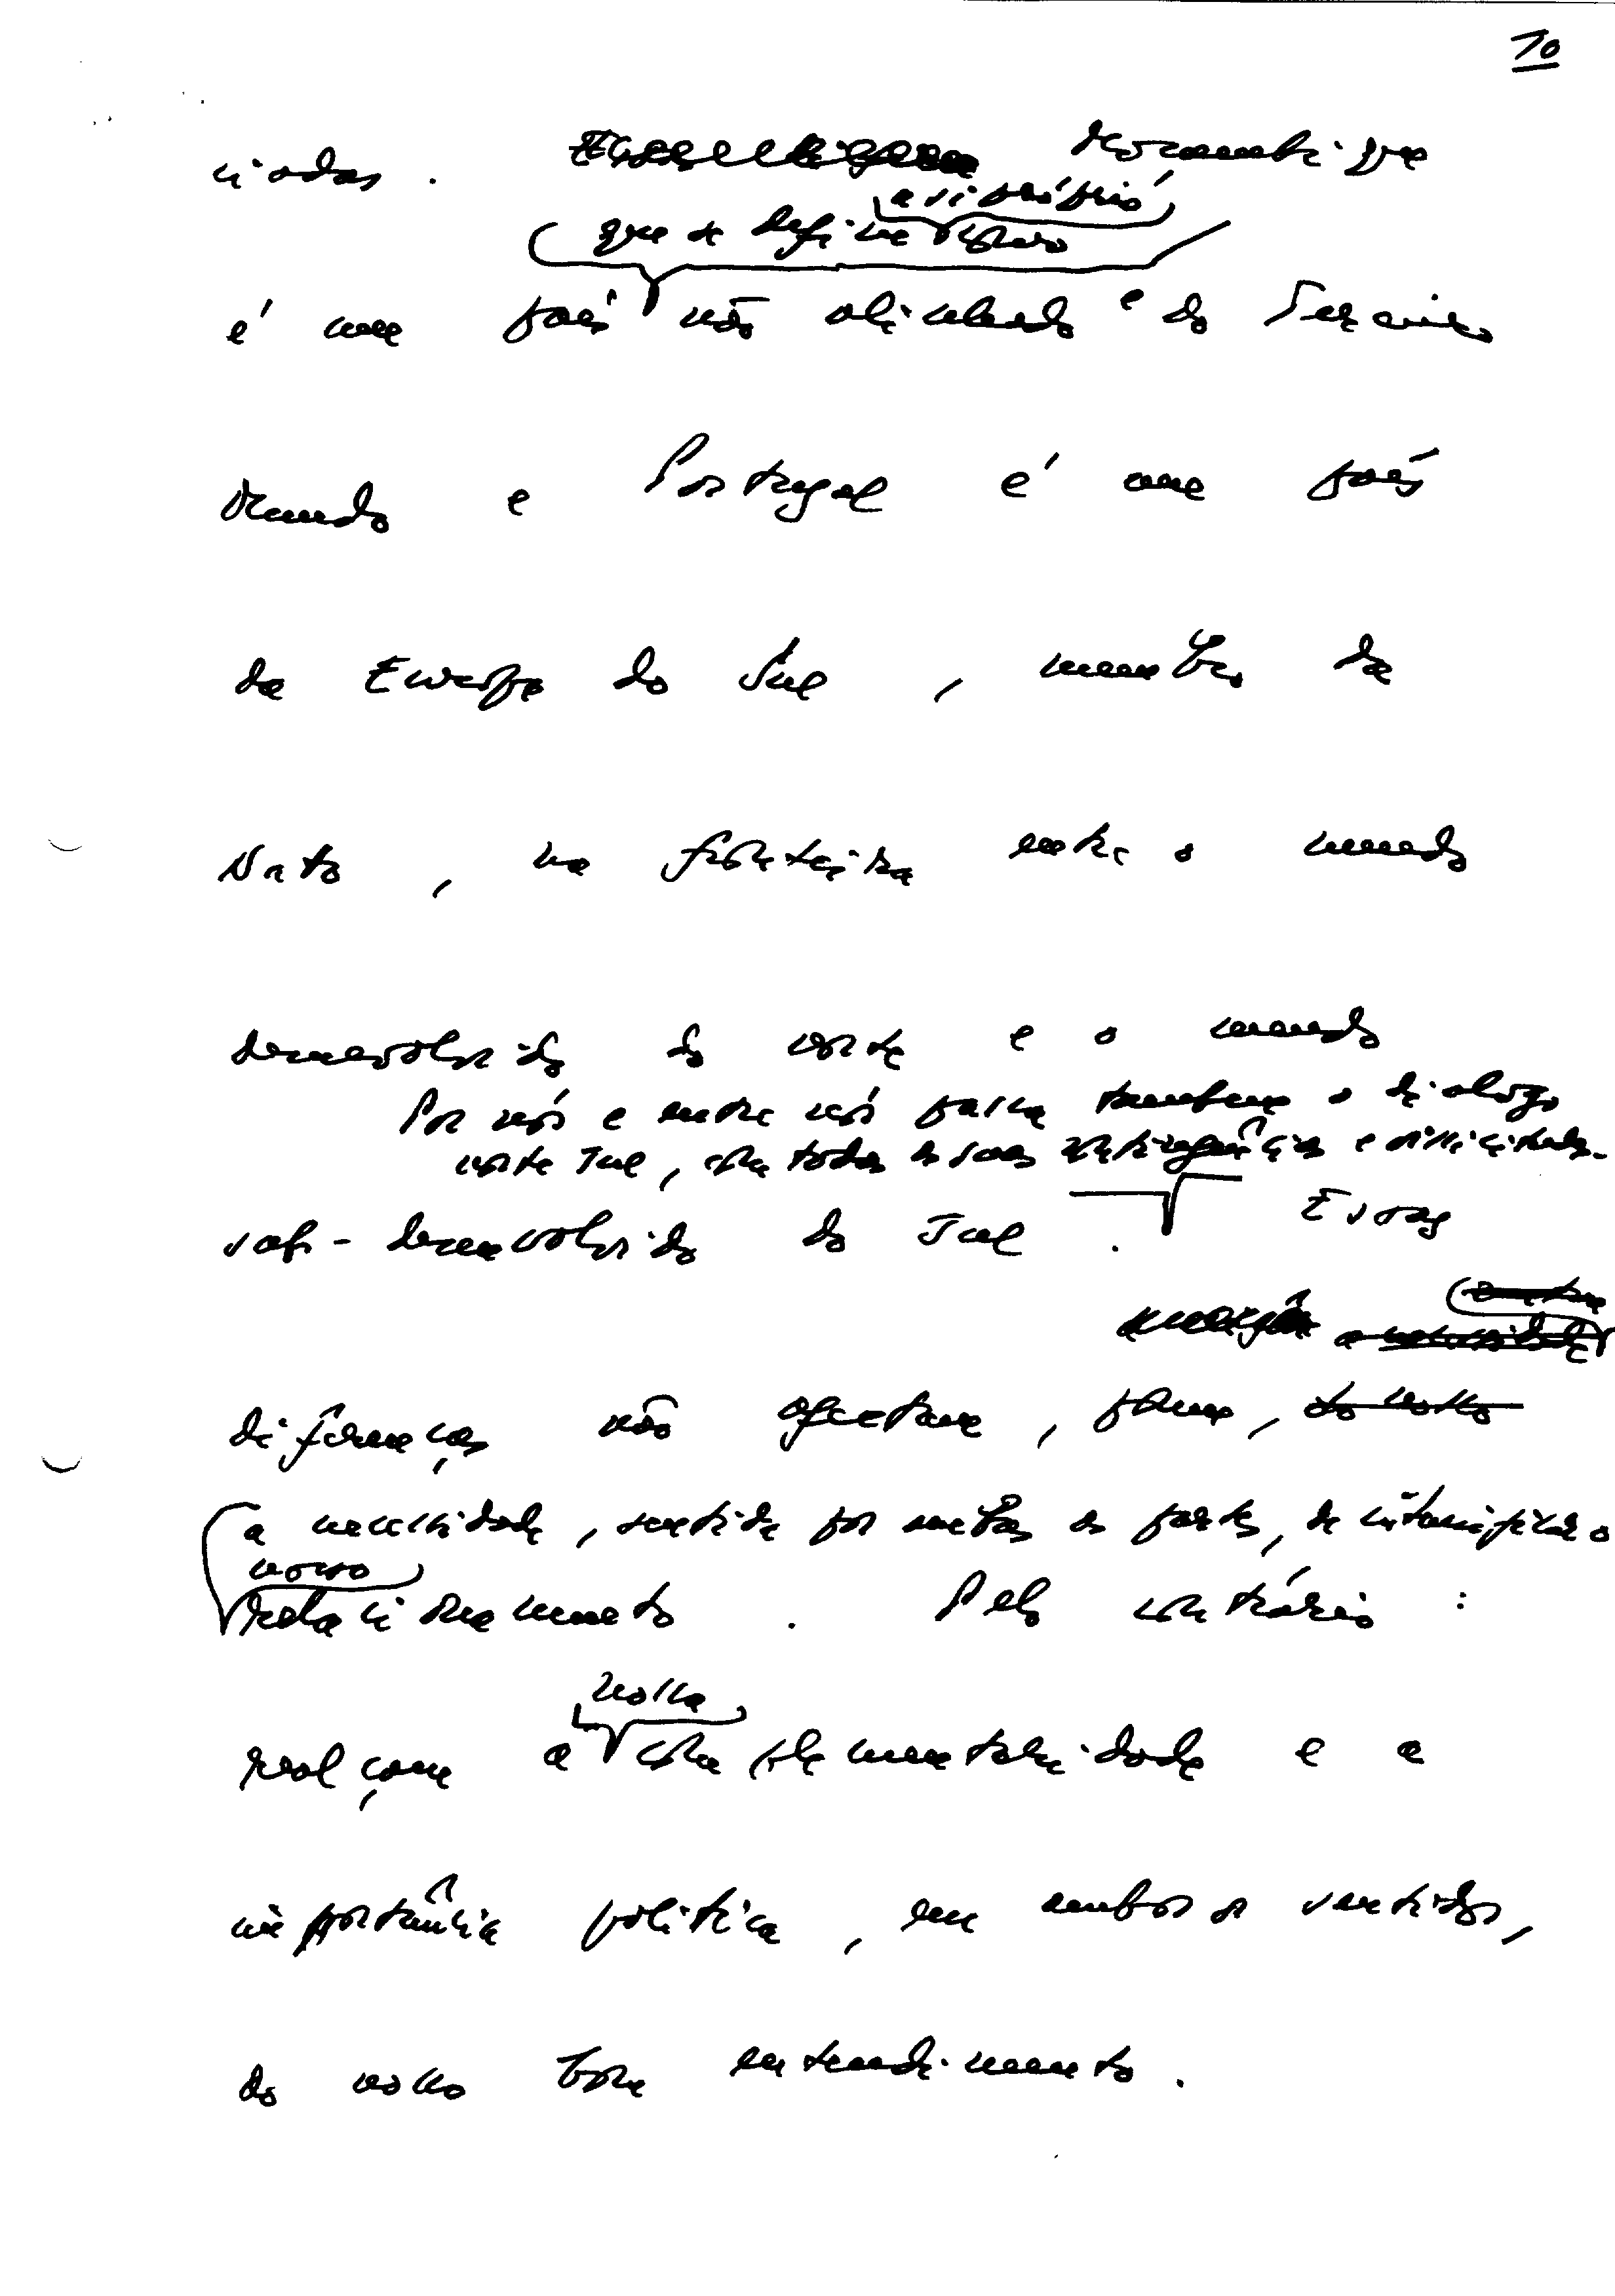 10
ciadas. Moçambique
a si próprio
que se define como
é um país não alinhado e do Terceiro
Mundo e Portugal é um país
da Europa do Sul, membro da
Nato, na fronteira entre o mundo
desenvolvido do norte e o mundo
Por nós e entre nós passa também o diálogo
norte Sul, com todas as suas e dificuldades.
sub-desenvolvido do Sul. Essas
a necessidade
diferenças não afectam, porém, do nosso
a necessidade, sentida por ambas as partes, de intensificar o
nosso
relacionamento. Pelo contrário:
nossa
realçam a complementaridade e a
importância política, em ambos os sentidos,
do nosso bom entendimento.